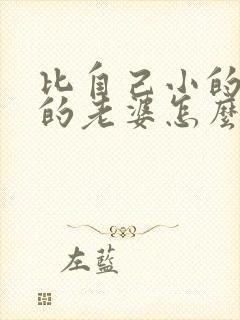 比自己小的
的老婆怎麼
左藍